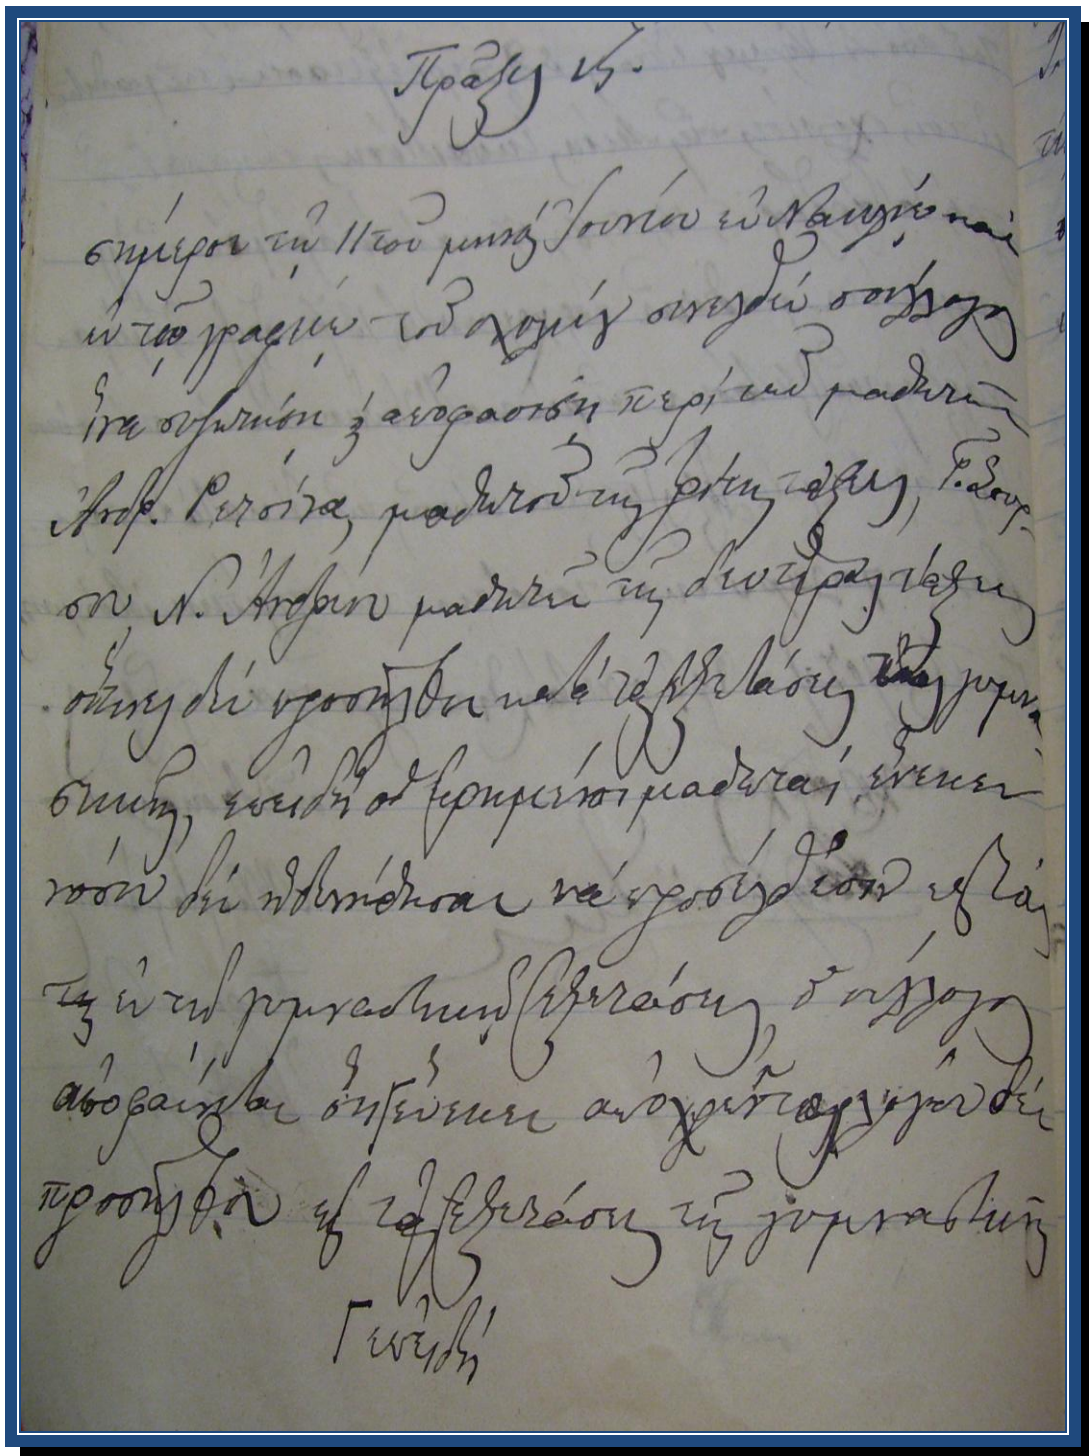 Πρᾶξις ιζ.
σήμερον τῇ 11 τοῦ μηνὸς Ἰουνίου ἐν Ναυπλίῳ καὶ
ἐν τῷ γραφείῳ τοῦ σχολείου συνελθὼν ὁ σύλλογος
ἵνα συζητήσῃ καὶ ἀποφασίσῃ περὶ τῶν μαθητῶν
Ἀνδρ. Ρετσίνα, μαθητοῦ τῆς τρίτης τάξεως,
Ν. μαθητῶν τῆς δευτέρας τάξεως
οἵτινες δὲν προσῆλθον κατὰ τὰς ἐξετάσεις τῆς γυμνα
στικῆς, ἐπειδὴ οἱ εἰρημένοι μαθηταὶ ἕνεκεν
νόσου δὲν ἠδυνήθησαν νὰ προσέλθωσιν εἰς τὰς
ἐν τῇ γυμναστικῇ ἐξετάσεις, ὁ σύλλογος
ἀποφαίνεται ὅτι ἕνεκεν ἀποχρώντων λόγων δὲν
προσῆλθον εἰς τὰς ἐξετάσεις τῆς γυμναστικῆς
ἐπειδὴ